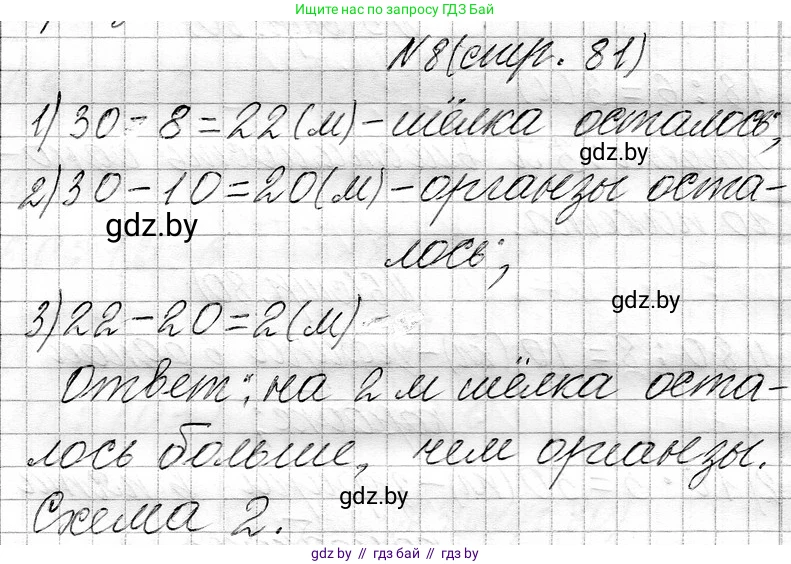 Найти все по запросу ГДЗ Бай
N8(стр. 81)
1) 30-8=22(м)-шёлка осталось;
gdz.by
2) 30-10=20(м)-органзы оста-
gdz.by
лось;
gdz.by
3) 22-20=2(м)-
Ответ: на 2 м шёлка оста-
лось больше, чем органзы.
gdz.by
Схема 2.
gdz.by // гдз бай // gdz.by